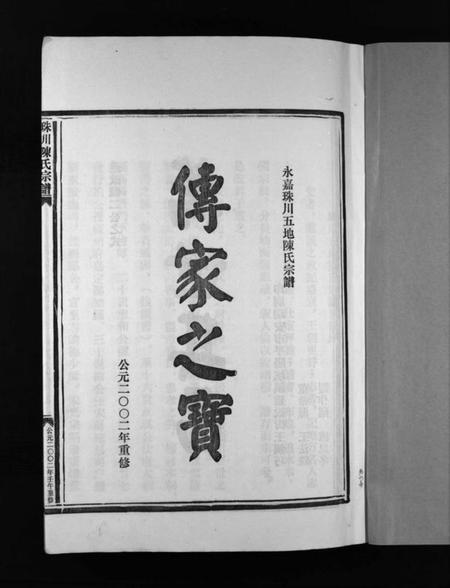 永嘉珠川五地陳氏宗譜
傳家之寶
公元二〇〇二年重修
珠川陳氏宗譜
公元二〇〇二年壬午重修